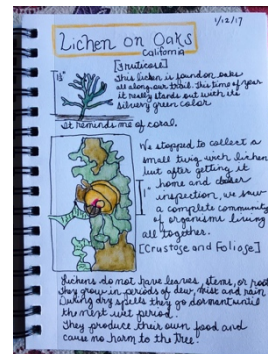 1/12/17
Lichen on Oaks
California
[Fruticose]
This lichen is found on oaks
all along our trail. This time of year
it really stands out with its
silvery green color.
It reminds me of coral.
We stopped to collect a
small twig with lichen
but after getting it
home and closer
inspection, we saw
a complete community
of organisms living
all together.
[Crustose and Foliose]
1"
Lichens do not have leaves, stems, or roots
They grow in periods of dew, mist and rain
During dry spells they go dormant until
the next wet period.
They produce their own food and
cause no harm to the tree.